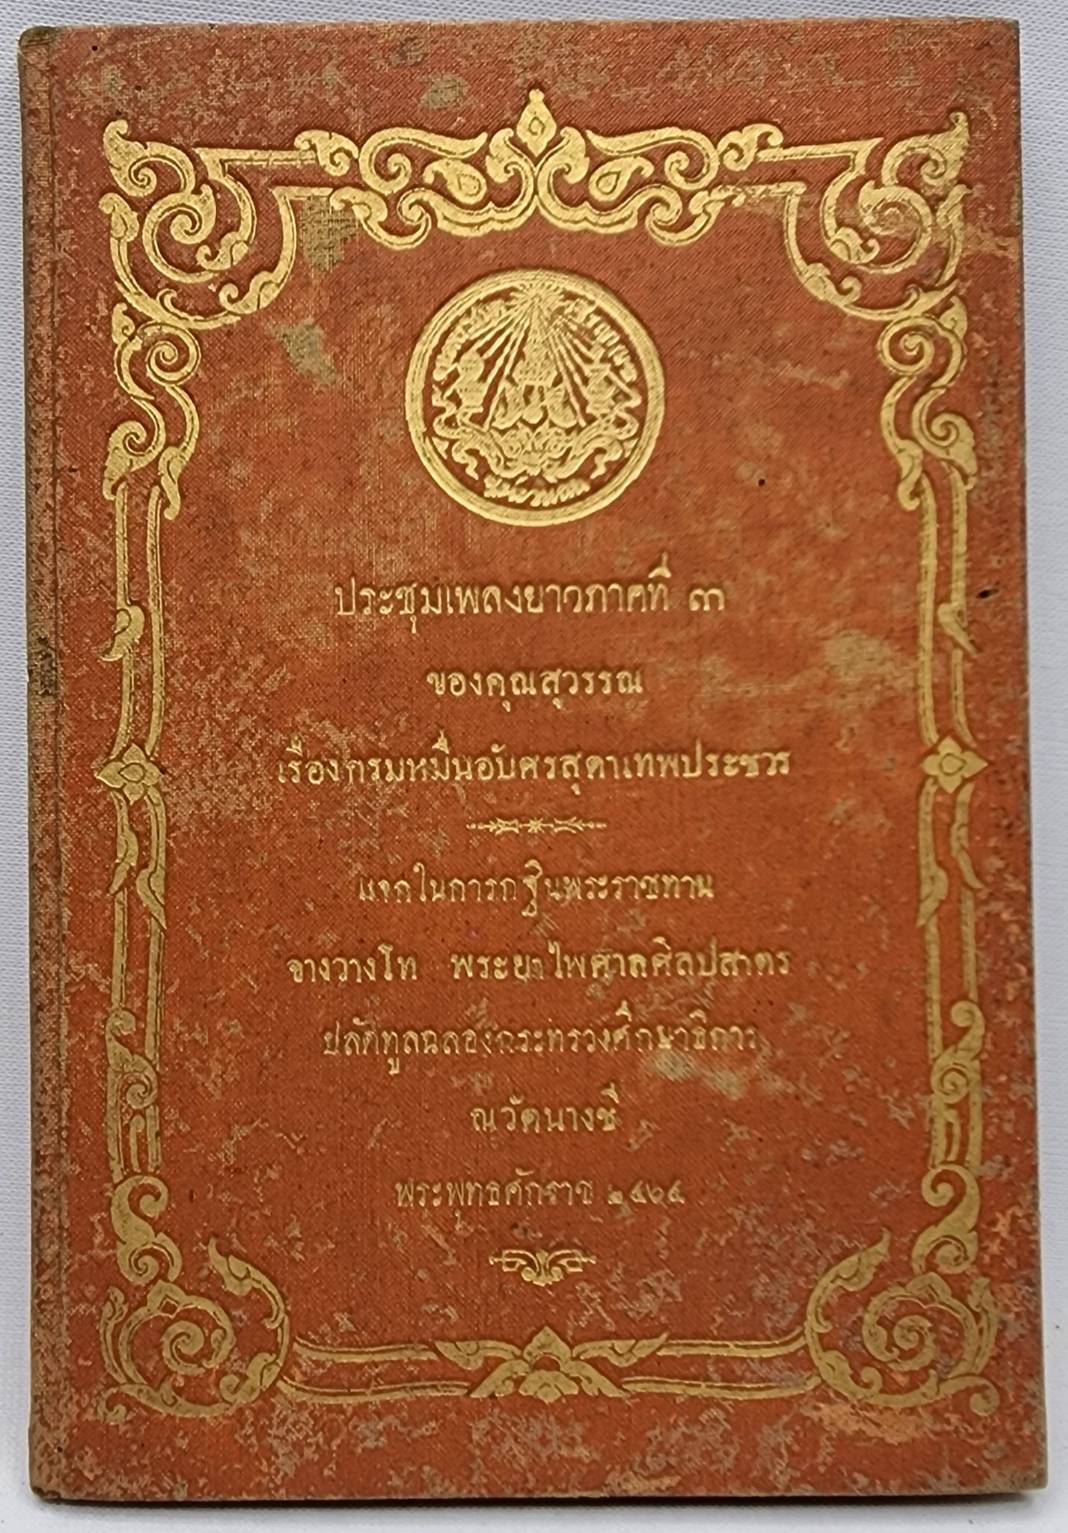 ประชุมเพลงยาวภาคที่ ๓
ของคุณสุวรรณ
เรื่องกรมหมื่นอับศรสุดาเทพประชวร
แจกในการกฐินพระราชทาน
จางวางโท พระยาไพศาลศิลปสาตร
ปลัดทูลฉลองกระทรวงศึกษาธิการ
ณวัดนางชี
พระพุทธศักราช